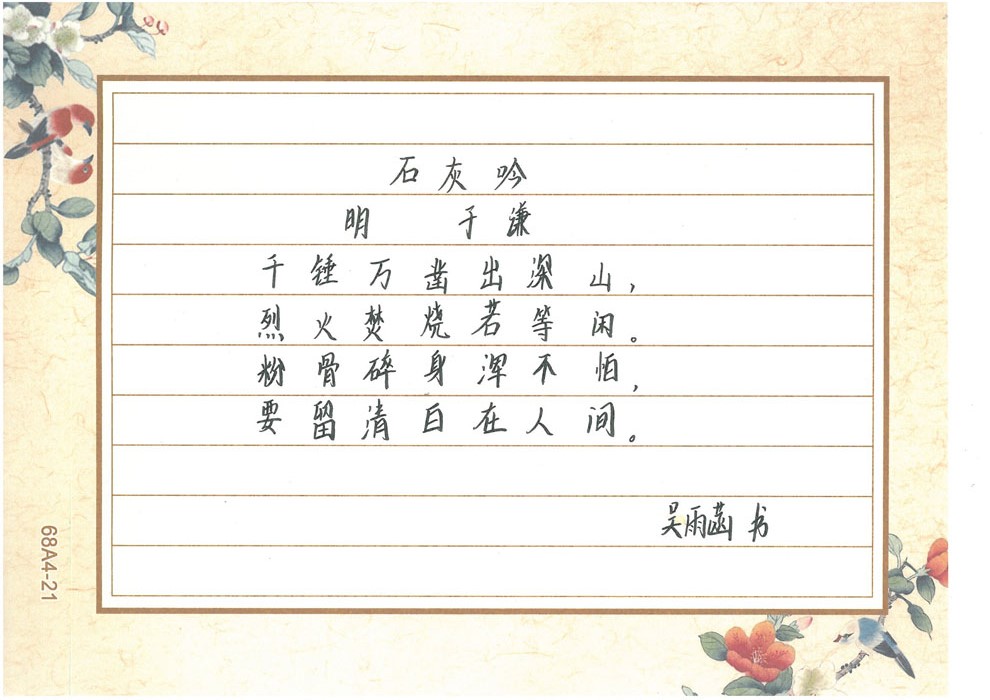 石灰吟
明 于谦
千锤万凿出深山，
烈火焚烧若等闲。
粉骨碎身浑不怕，
要留清白在人间。
吴雨菡 书
68A4-21